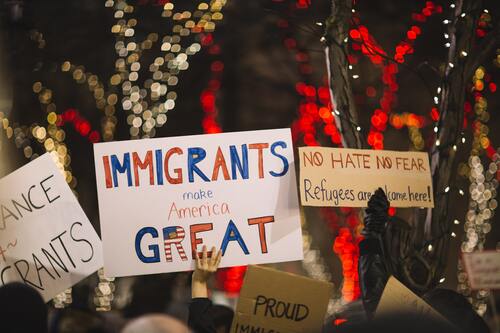 IMMIGRANTS
make
America
GREAT
NO HATE NO FEAR
Refugees are come here!
ANCE
GRANTS
PROUD